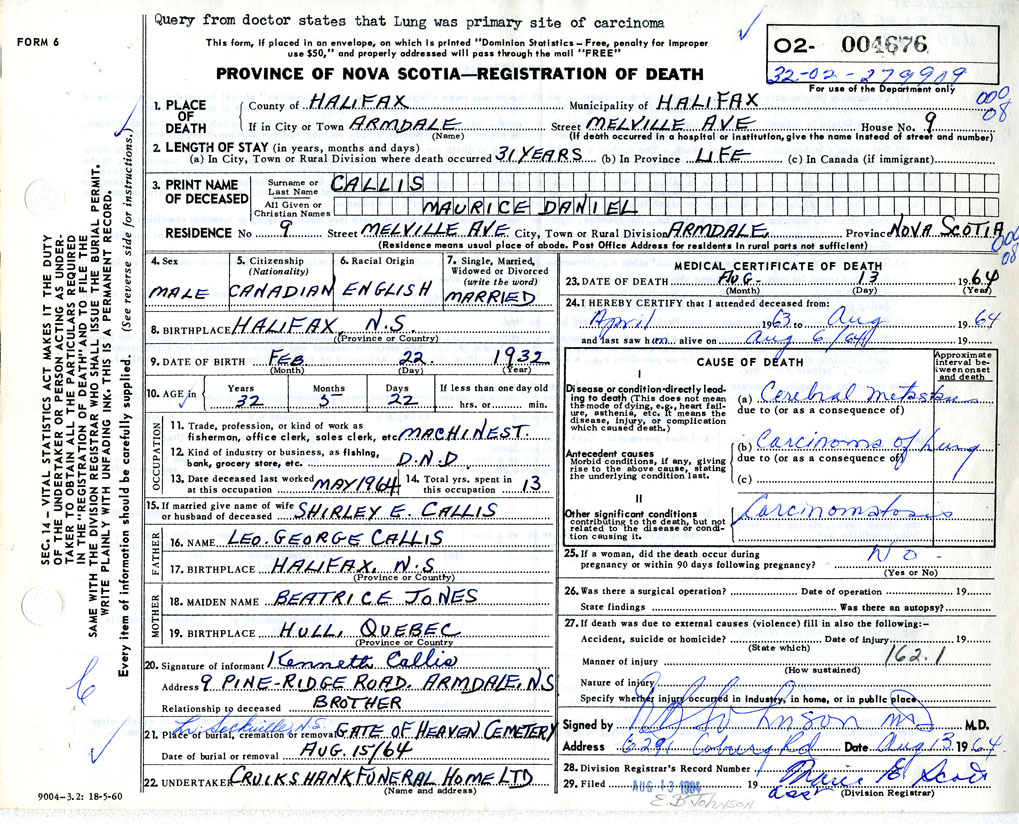 Query from doctor states that Lung was primary site of carcinoma
FORM 6
This form, if placed in an envelope, on which is printed "Dominion Statistics – Free, penalty for improper
use $50," and properly addressed will pass through the mail "FREE"
PROVINCE OF NOVA SCOTIA—REGISTRATION OF DEATH
02- 004676
32-02-279909
For use of the Department only
000
08
1. PLACE OF DEATH
County of HALIFAX Municipality of HALIFAX
If in City or Town ARMDALE Street MELVILLE AVE House No. 9
(Name) (If death occurred in a hospital or institution, give the name instead of street and number)
2. LENGTH OF STAY (in years, months and days)
(a) In City, Town or Rural Division where death occurred 31 YEARS (b) In Province LIFE (c) In Canada (if immigrant)
3. PRINT NAME OF DECEASED
Surname or Last Name CALLIS
All Given or Christian Names MAURICE DANIEL
RESIDENCE No 9 Street MELVILLE AVE City, Town or Rural Division ARMDALE Province NOVA SCOTIA
(Residence means usual place of abode. Post Office Address for residents in rural parts not sufficient)
000
08
4. Sex MALE
5. Citizenship (Nationality) CANADIAN
6. Racial Origin ENGLISH
7. Single, Married, Widowed or Divorced (write the word) MARRIED
8. BIRTHPLACE HALIFAX, N.S.
(Province or Country)
9. DATE OF BIRTH FEB 22. 1932
(Month) (Day) (Year)
10. AGE in Years 32 Months 5 Days 22 If less than one day old hrs. or min.
OCCUPATION
11. Trade, profession, or kind of work as
fisherman, office clerk, sales clerk, etc. MACHINEST.
12. Kind of industry or business, as fishing,
bank, grocery store, etc. D.N.D.
13. Date deceased last worked at this occupation MAY 1964 14. Total yrs. spent in this occupation 13
15. If married give name of wife or husband of deceased SHIRLEY E. CALLIS
FATHER
16. NAME LEO. GEORGE CALLIS
17. BIRTHPLACE HALIFAX, N.S
(Province or Country)
MOTHER
18. MAIDEN NAME BEATRICE JONES
19. BIRTHPLACE HULL, QUEBEC
(Province or Country
20. Signature of informant Kenneth Callis
Address 9 PINE-RIDGE ROAD. ARMDALE, N.S
Relationship to deceased BROTHER
Lr. Sackville, N.S.
21. Place of burial, cremation or removal GATE OF HEAVEN CEMETERY
Date of burial or removal AUG. 15/64
22. UNDERTAKER CRUIKSHANK FUNERAL HOME LTD
(Name and address)
9004-3.2: 18-5-60
MEDICAL CERTIFICATE OF DEATH
23. DATE OF DEATH AUG- 13 1964
(Month) (Day) (Year)
24. I HEREBY CERTIFY that I attended deceased from:
April 1963 to Aug 1964
and last saw him alive on Aug 6/64
CAUSE OF DEATH
Approximate interval between onset and death
I
Disease or condition directly leading to death (This does not mean the mode of dying, e.g., heart failure, asthenia, etc. It means the disease, injury, or complication which caused death.)
(a) Cerebral Metastases
due to (or as a consequence of)
Antecedent causes
Morbid conditions, if any, giving rise to the above cause, stating the underlying condition last.
(b) Carcinoma of Lung
due to (or as a consequence of)
(c)
II
Other significant conditions contributing to the death, but not related to the disease or condition causing it.
Carcinomatosis
25. If a woman, did the death occur during
pregnancy or within 90 days following pregnancy? No -
(Yes or No)
26. Was there a surgical operation? Date of operation 19
State findings Was there an autopsy?
27. If death was due to external causes (violence) fill in also the following:–
Accident, suicide or homicide? Date of injury 19
(State which)
162.1
Manner of injury
(How sustained)
Nature of injury
Specify whether injury occurred in industry, in home, or in public place
Signed by Johnson MD M.D.
Address 6291 Coburg Rd Date Aug 13 1964
28. Division Registrar's Record Number
29. Filed AUG 13 1964 19
asst (Division Registrar)
E B Johnson
SEC. 14 – VITAL STATISTICS ACT MAKES IT THE DUTY
OF THE UNDERTAKER OR PERSON ACTING AS UNDER-
TAKER "TO OBTAIN ALL THE PARTICULARS REQUIRED
IN THE "REGISTRATION OF DEATH" AND TO FILE THE
SAME WITH THE DIVISION REGISTRAR WHO SHALL ISSUE THE BURIAL PERMIT.
WRITE PLAINLY WITH UNFADING INK. THIS IS A PERMANENT RECORD.
Every item of information should be carefully supplied. (See reverse side for instructions.)